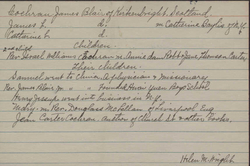 Cochran, James Blair of Kirkcudbright, Scotland
James L. b. m. Catherine Bayles of N.Y.
Catherine b. d.
Children.
Rev. Israel Williams Cochran m. Annie de Robb Jean Thomson Carter
Their children.
Samuel went to China. A physician & missionary
Rev. James Blair Jr. " " Founded Hwai Yuen Boys School
Harry Joseph went into business in N.Y.
Mary, m. Rev. Douglas McFellan of Liverpool Eng
Jean Carter Cochran. Author of
Helen M. Wright